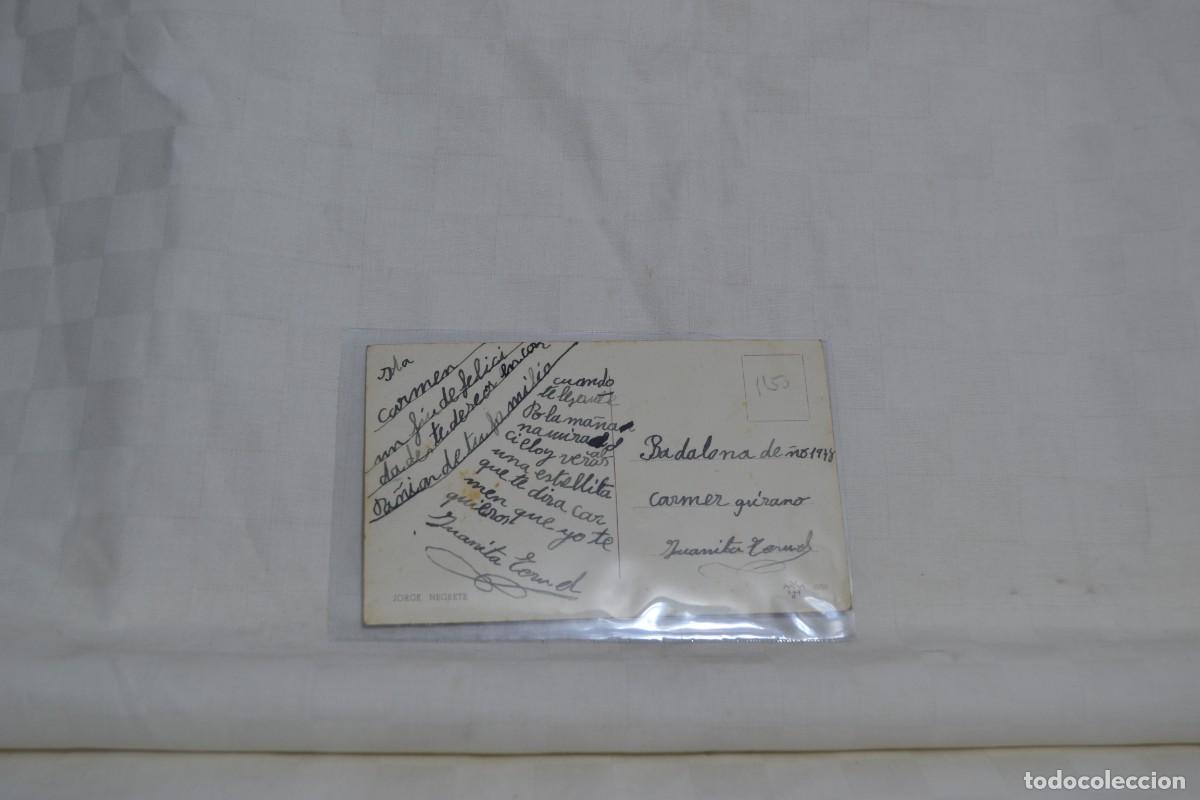 Dta
Carmen
un fin de felici
da de te deseo en con
pañian de tu familia
cuando
te levante
Po la maña
na mira al
cielo y veras
una estellita
que te dira car
men que yo te
quiero
Juanita
JORGE NEGRETE
1150
Badalona de 1948
Carmen
Juanita
todocoleccion